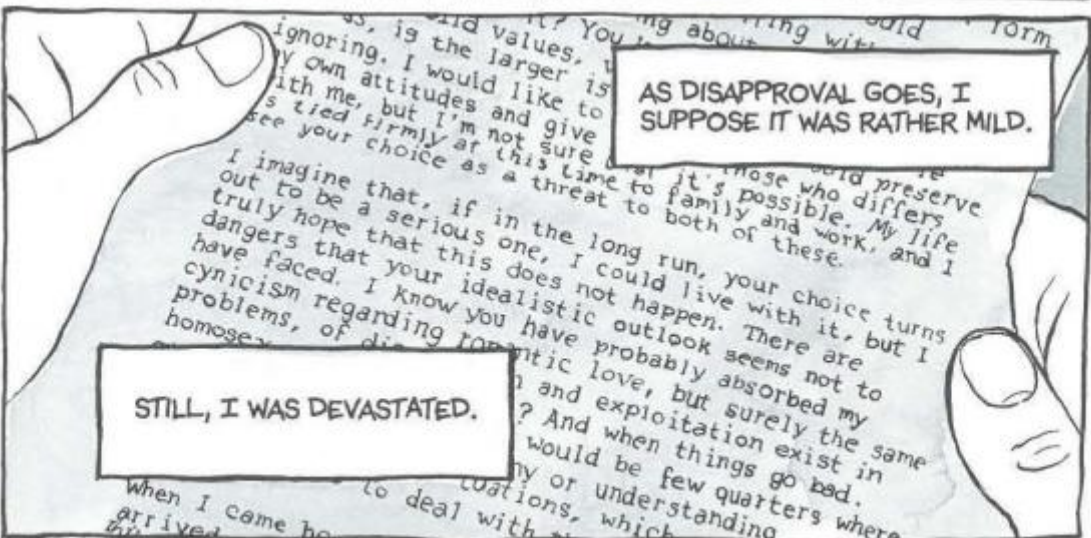 AS DISAPPROVAL GOES, I
SUPPOSE IT WAS RATHER MILD.
form
values,
is the larger
ignoring. I would like to
own attitudes and give
with me, but I'm not sure it's possible. My life
tied firmly at this time to family and work, and I
see your choice as a threat to both of these.
those who differs
preserve
I imagine that, if in the long run, your choice turns
out to be a serious one, I could live with it, but I
truly hope that this does not happen. There are
dangers that your idealistic outlook seems not to
have faced. I know you have probably absorbed my
cynicism regarding romantic love, but surely the same
problems, of and exploitation exist in
? And when things go bad.
would be few quarters where
or understanding
which
to deal with
When I came
arrived
STILL, I WAS DEVASTATED.